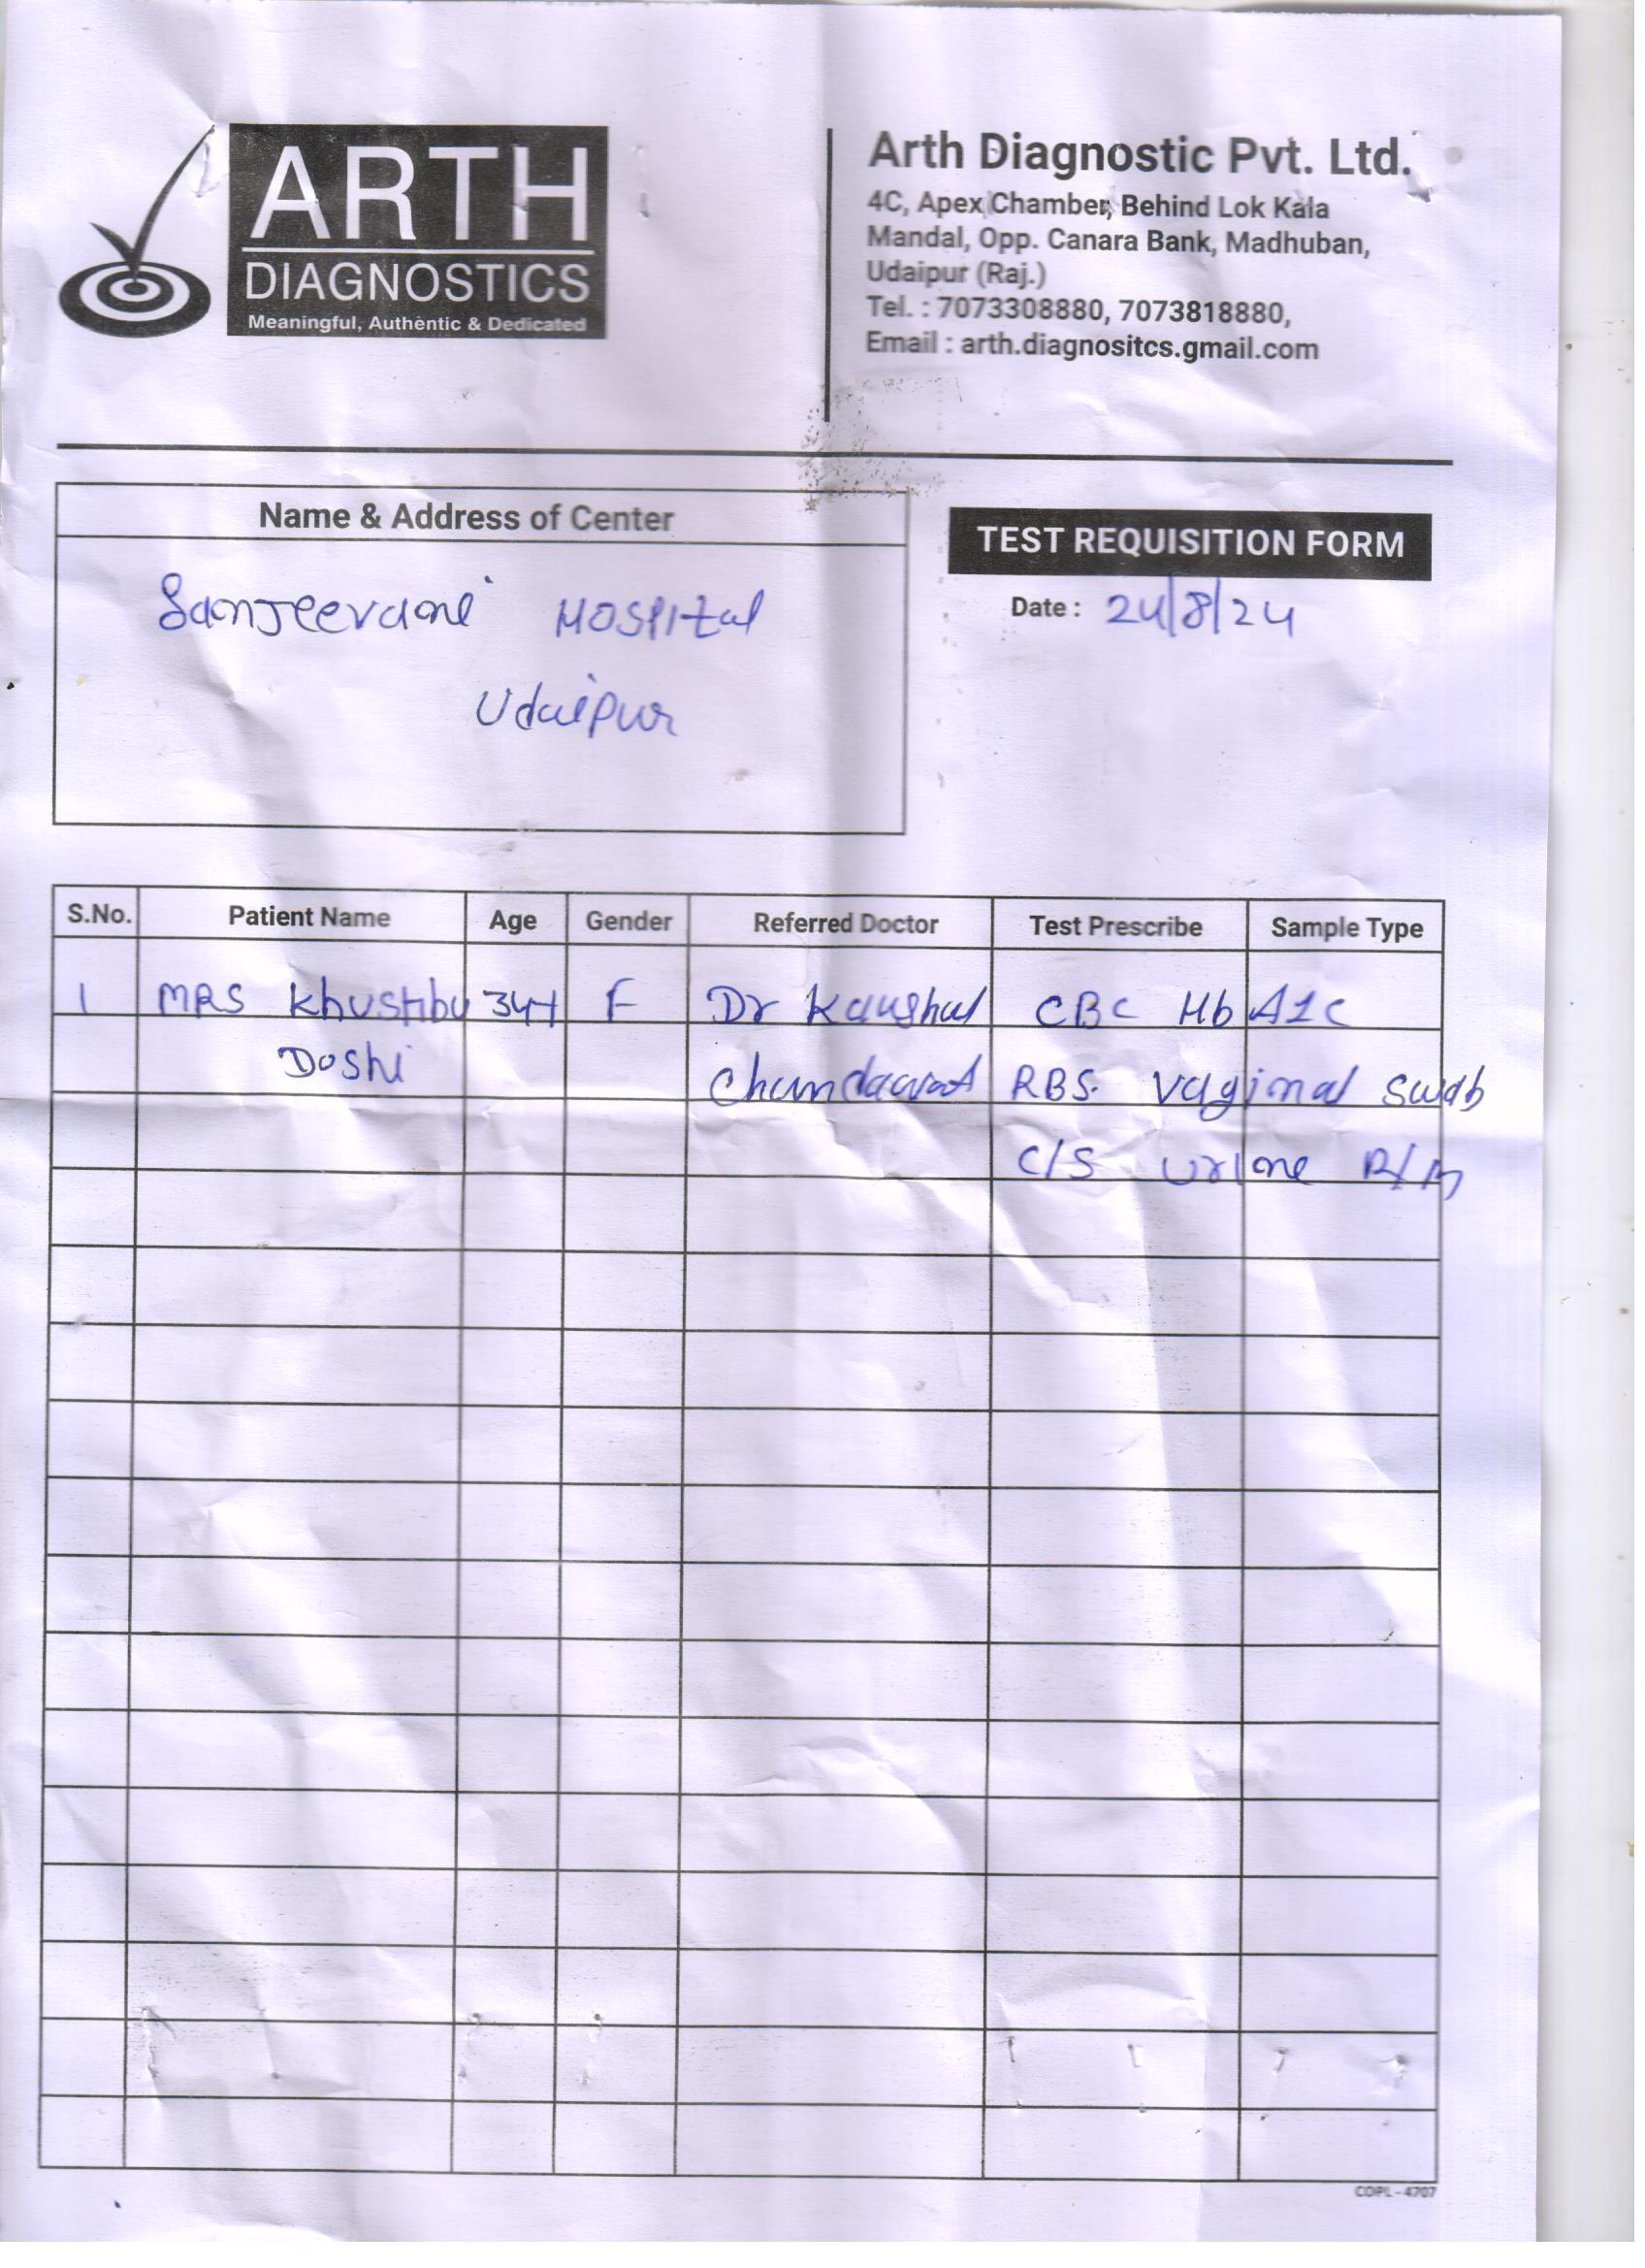 ARTH
DIAGNOSTICS
Meaningful, Authentic & Dedicated
Arth Diagnostic Pvt. Ltd.
4C, Apex Chamber, Behind Lok Kala
Mandal, Opp. Canara Bank, Madhuban,
Udaipur (Raj.)
Tel. : 7073308880, 7073818880,
Email : arth.diagnositcs.gmail.com
Name & Address of Center
Sanjeevani Hospital
Udaipur
TEST REQUISITION FORM
Date : 24/8/24
S.No. Patient Name Age Gender Referred Doctor Test Prescribe Sample Type
1 MRS Khushbu 34Y F Dr Kaushal CBC HbA1C
Doshi Chundawat RBS. Vaginal Swab
C/S Urine R/M
COPL-4707